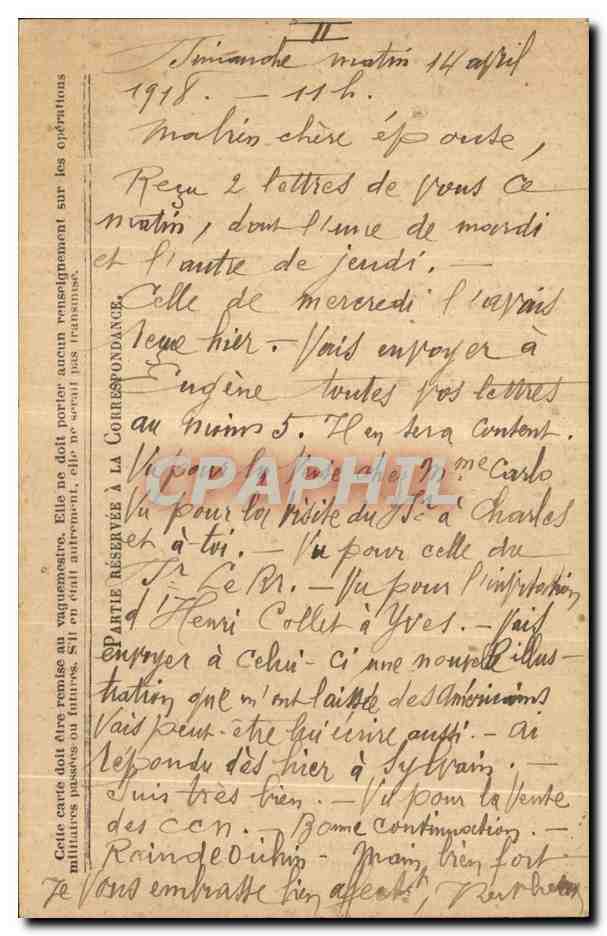 II
Dimanche matin 14 april
1918. — 11 h.
chère épouse,
Reçu 2 lettres de vous ce
matin, dont l'une de mardi
et l'autre de jeudi. —
Celle de mercredi l'avais
reçue hier. — Vais envoyer à
Eugène toutes vos lettres
au moins 5. Il en sera content.
Vu pour la chez Mme Carlo
Vu pour la visite du à Charles
et à toi. — Vu pour celle du
Dr Le Br. — Vu pour l'invitation
d'Henri Collet à Yves. — Vais
envoyer à celui-ci une nouvelle illus-
tration que m'ont laissée des Américains
Vais peut-être lui écrire aussi. — Ai
répondu dès hier à Sylvain. —
Suis très bien. — Vu pour la vente
des — Bonne continuation. —
bien fort
Je vous embrasse bien affectt,
PARTIE RÉSERVÉE À LA CORRESPONDANCE.
Cette carte doit être remise au vaguemestre. Elle ne doit porter aucun renseignement sur les opérations
militaires passées ou futures. S'il en était autrement, elle ne serait pas transmise.
CPAPHIL